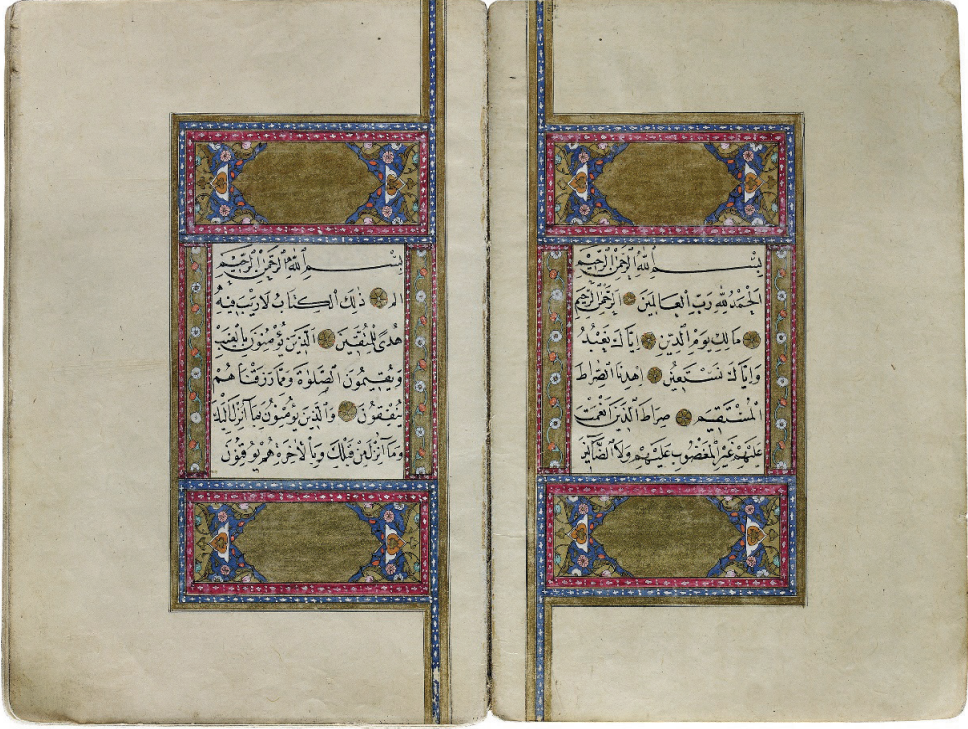 بِسْمِ اللّٰهِ الرَّحْمٰنِ الرَّحِيْمِ
اَلْحَمْدُ لِلّٰهِ رَبِّ الْعَالَمِيْنَ الرَّحْمٰنِ الرَّحِيْمِ
مَالِكِ يَوْمِ الدِّيْنِ اِيَّاكَ نَعْبُدُ
وَاِيَّاكَ نَسْتَعِيْنُ اِهْدِنَا الصِّرَاطَ
الْمُسْتَقِيْمَ صِرَاطَ الَّذِيْنَ اَنْعَمْتَ
عَلَيْهِمْ غَيْرِ الْمَغْضُوْبِ عَلَيْهِمْ وَلَا الضَّالِّيْنَ
بِسْمِ اللّٰهِ الرَّحْمٰنِ الرَّحِيْمِ
الم ذٰلِكَ الْكِتَابُ لَا رَيْبَ فِيْهِ
هُدًى لِلْمُتَّقِيْنَ اَلَّذِيْنَ يُؤْمِنُوْنَ بِالْغَيْبِ
وَيُقِيْمُوْنَ الصَّلٰوةَ وَمِمَّا رَزَقْنَاهُمْ
يُنْفِقُوْنَ وَالَّذِيْنَ يُؤْمِنُوْنَ بِمَا اُنْزِلَ اِلَيْكَ
وَمَا اُنْزِلَ مِنْ قَبْلِكَ وَبِالْاٰخِرَةِ هُمْ يُوْقِنُوْنَ